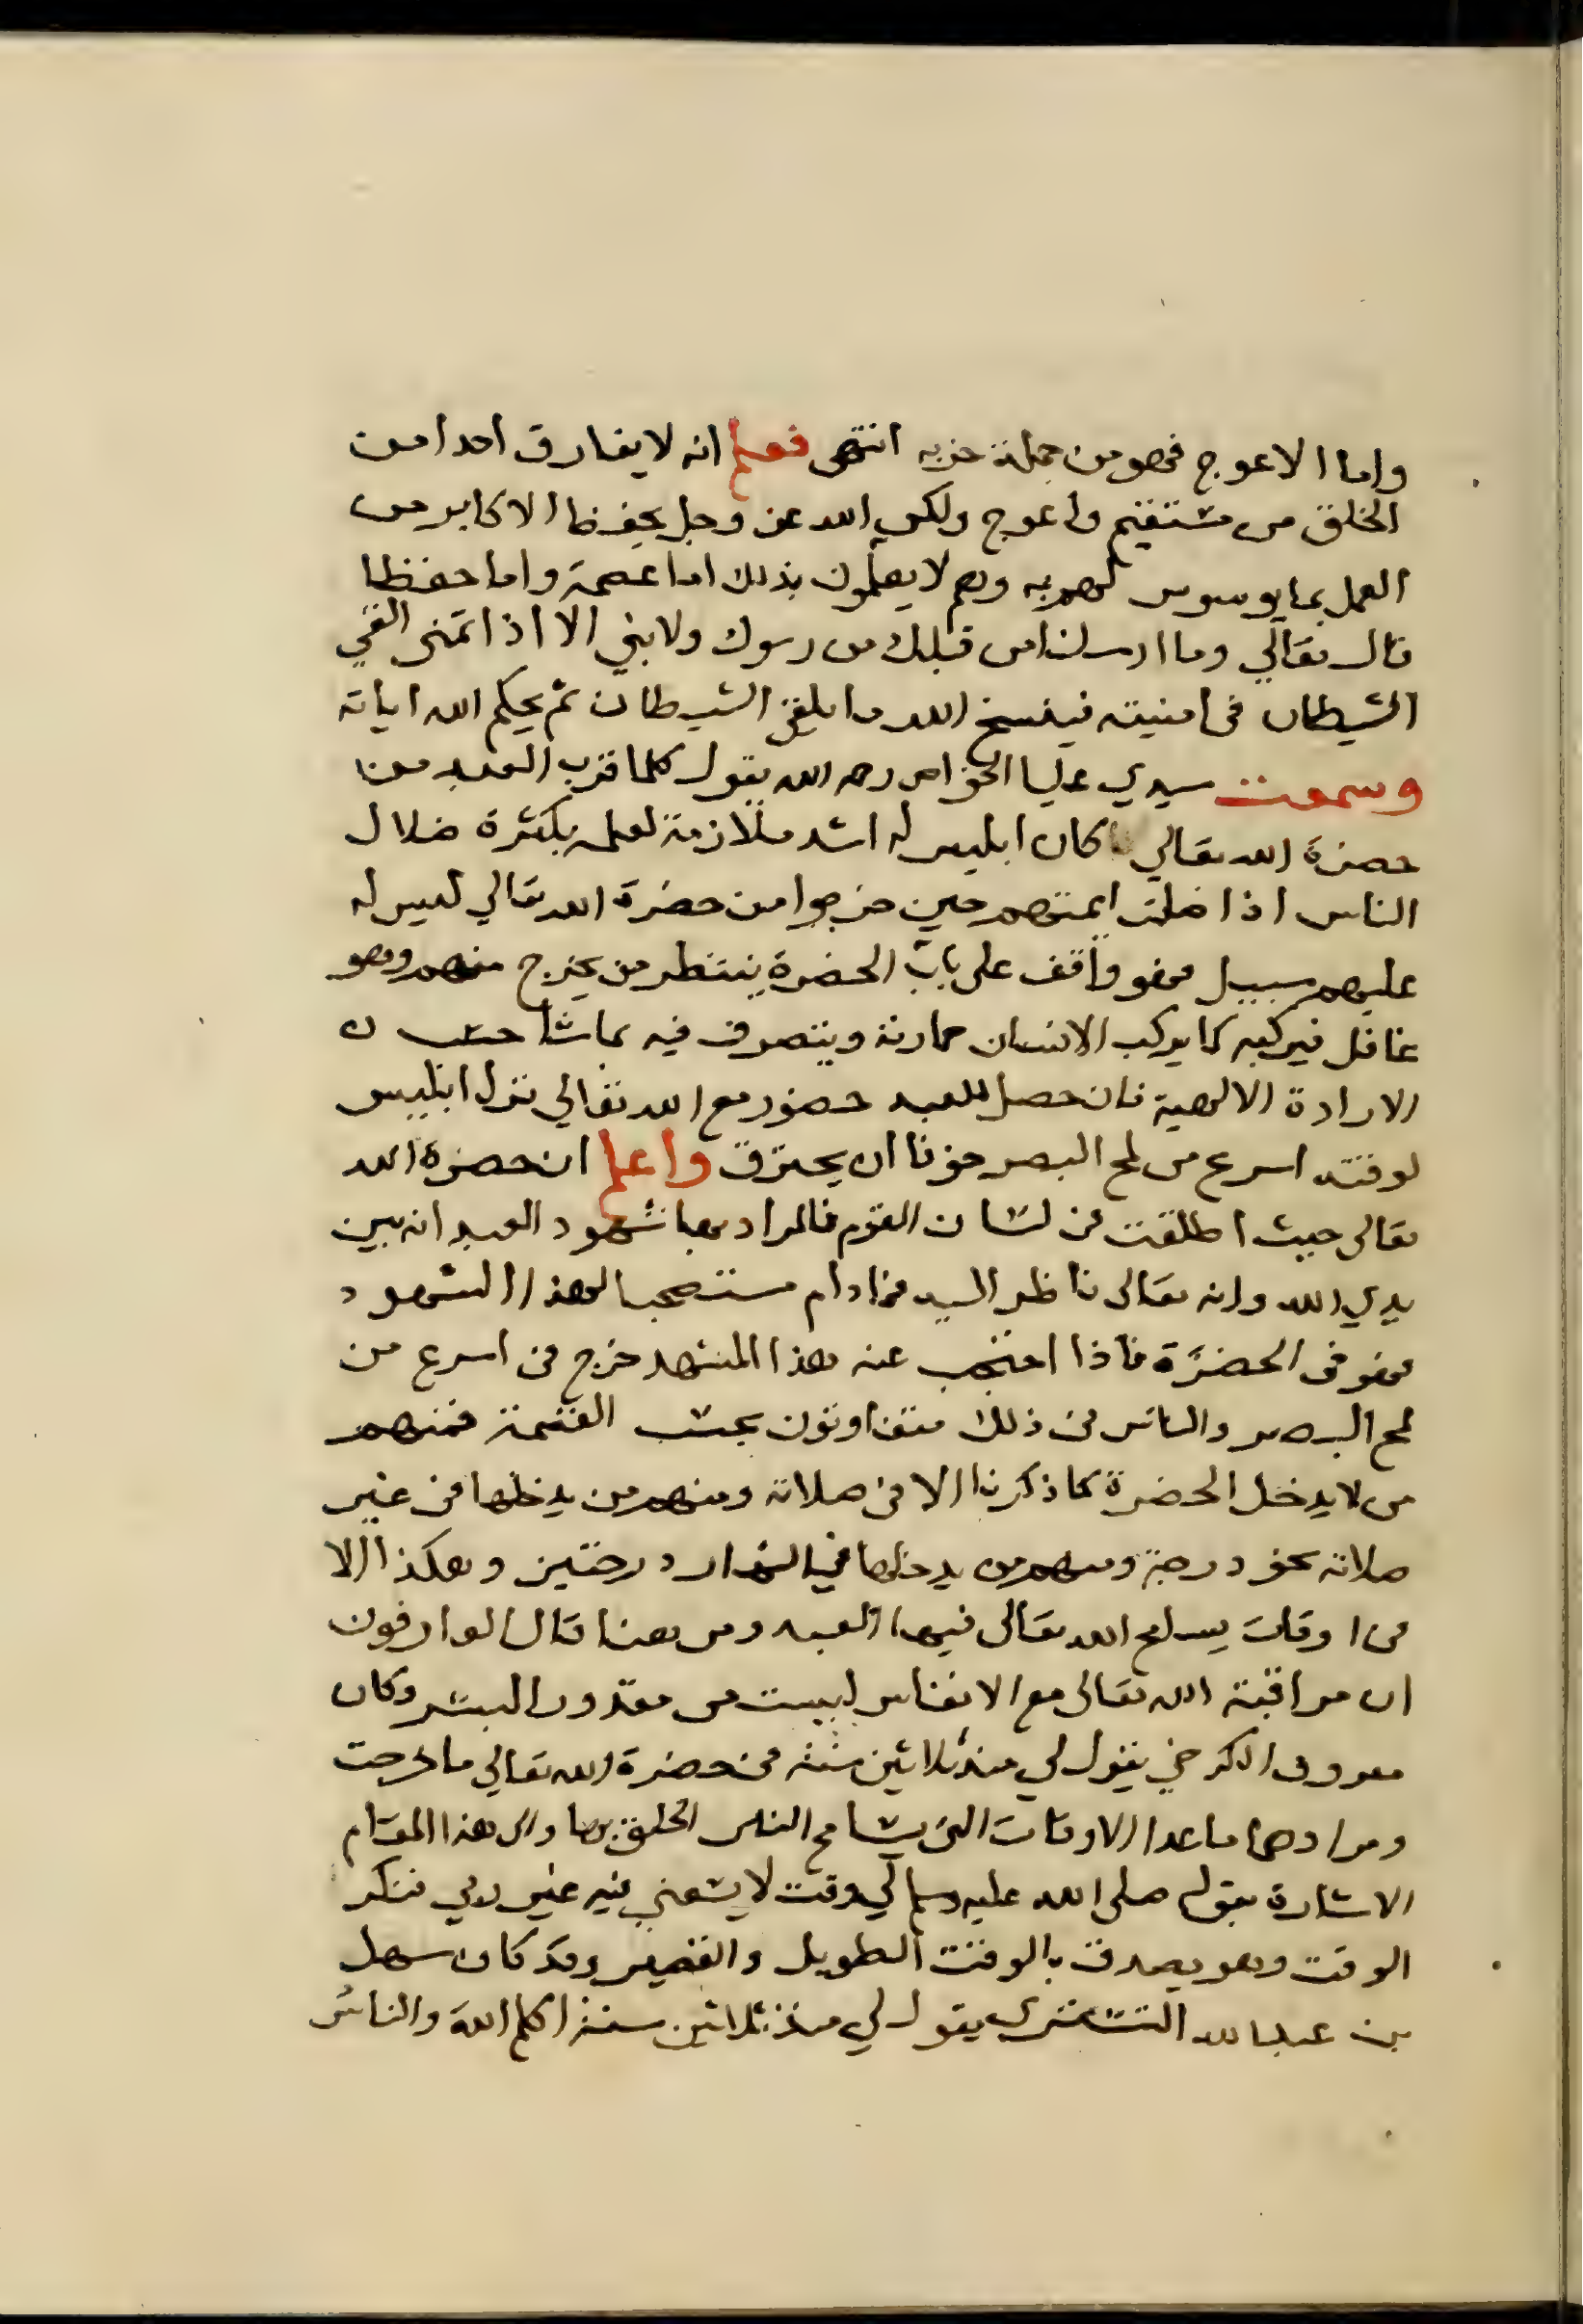 واما الاعوج فهو من جملة حزبه انتهى فعلم انه لا يفارق احدا من
الخلق من مستقيم واعوج ولكن الله عز وجل يحفظ الاكابر من
العمل بما يوسوس لهم به وهم لا يعلمون بذلك اما عصمة واما حفظا
قال تعالي وما ارسلنا من قبلك من رسول ولا نبي الا اذا تمنى القي
الشيطان في امنيته فينسخ الله ما يلقي الشيطان ثم يحكم الله اياته
وسمعت سيدي عليا الخواص رحمه الله يقول كلما قرب العبد من
حضرة الله تعالي كان ابليس له اشد ملازمة لعلمه بكثرة ضلال
الناس اذا ضلت ايمتهم حين خرجوا من حضرة الله تعالي ليس له
عليهم سبيل فهو واقف على باب الحضرة ينتظر من يخرج منهم وهو
غافل فيركبه كما يركب الانسان حمارته ويتصرف فيه بماشا حسب
الارادة الالهية فان حصل للعبد حضور مع الله تعالي نزل ابليس
لوقته اسرع من لمح البصر خوفا ان يحترق واعلم ان حضرة الله
تعالى حيث اطلقت في لسان القوم فالمراد بها شهود العبد انه بين
يدي الله وانه تعالى ناظر اليه فما دام مستصحبا لهذا الشهود
فهو في الحضرة فاذا احتجب عنه هذا المشهد خرج في اسرع من
لمح البصر والناس في ذلك متفاوتون بحسب القسمة فمنهم
من لا يدخل الحضرة كما ذكرنا الا في صلاته ومنهم من يدخلها في غير
صلاته نحو درجة ومنهم من يدخلها في النهار درجتين وهكذا الا
في اوقات يسامح الله تعالى فيها العبد ومن هنا قال العارفون
ان مراقبة الله تعالى مع الانفاس ليست من مقدور البشر وكان
معروف الكرخي يقول لي منذ ثلاثين سنة في حضرة الله تعالي ما خرجت
ومراده ما عدا الاوقات التي يسامح الناس الخلق بها والى هذا المقام
الاشارة بقوله صلى الله عليه وسلم لي وقت لا يسعني فيه غير ربي فنكر
الوقت وهو يصدق بالوقت الطويل والقصير وقد كان سهل
بن عبد الله التستري يقول لي منذ ثلاثين سنة اكلم الله والناس